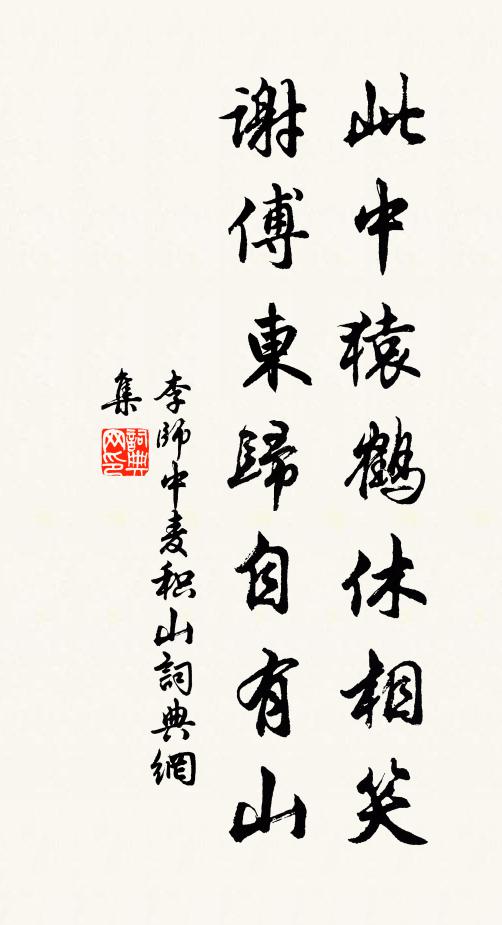 此中猿鶴休相笑
謝傅東歸自有山
李師中麦积山詞典網
集
詞典
网印